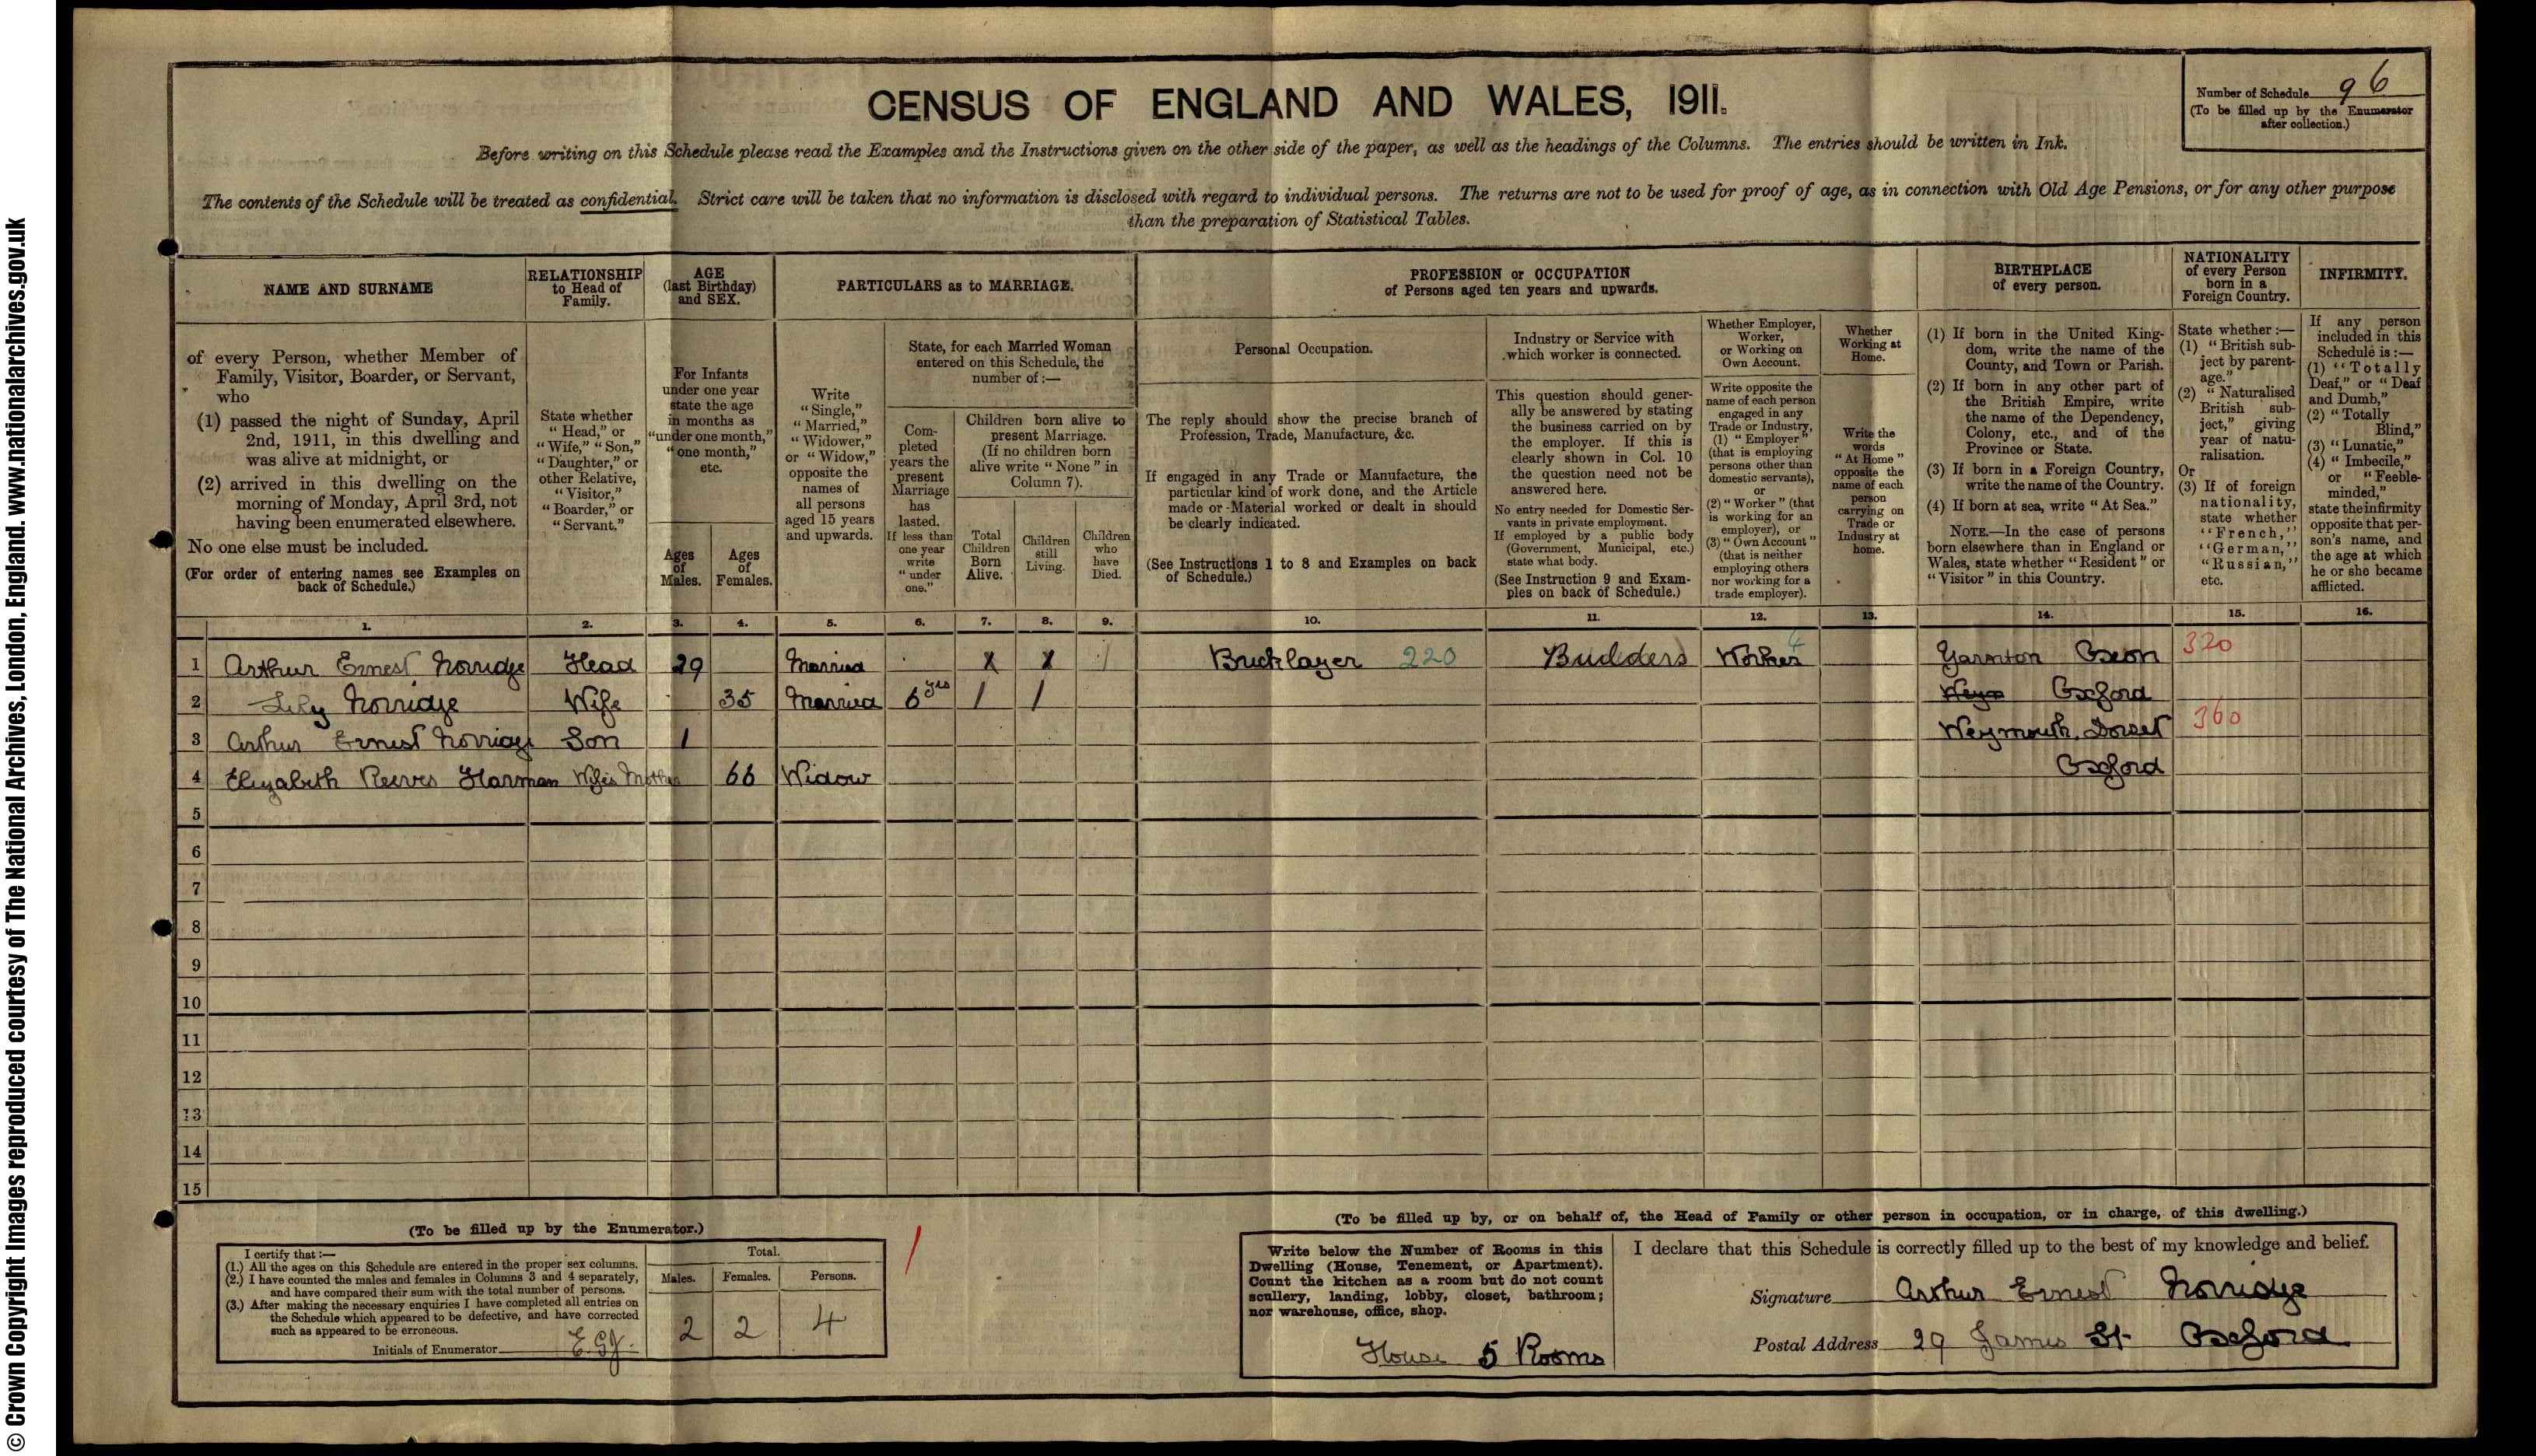 © Crown Copyright Images reproduced courtesy of The National Archives, London, England. www.nationalarchives.gov.uk
CENSUS OF ENGLAND AND WALES, 1911.
Number of Schedule 96
(To be filled up by the Enumerator
after collection.)
Before writing on this Schedule please read the Examples and the Instructions given on the other side of the paper, as well as the headings of the Columns. The entries should be written in Ink.
The contents of the Schedule will be treated as confidential. Strict care will be taken that no information is disclosed with regard to individual persons. The returns are not to be used for proof of age, as in connection with Old Age Pensions, or for any other purpose
than the preparation of Statistical Tables.
NAME AND SURNAME
of every Person, whether Member of
Family, Visitor, Boarder, or Servant,
who
(1) passed the night of Sunday, April
2nd, 1911, in this dwelling and
was alive at midnight, or
(2) arrived in this dwelling on the
morning of Monday, April 3rd, not
having been enumerated elsewhere.
No one else must be included.
(For order of entering names see Examples on
back of Schedule.)
RELATIONSHIP
to Head of
Family.
State whether
"Head," or
"Wife," "Son,"
"Daughter," or
other Relative,
"Visitor,"
"Boarder," or
"Servant."
AGE
(last Birthday)
and SEX.
For Infants
under one year
state the age
in months as
"under one month,"
"one month,"
etc.
Ages
of
Males.
Ages
of
Females.
PARTICULARS as to MARRIAGE.
Write
"Single,"
"Married,"
"Widower,"
or "Widow,"
opposite the
names of
all persons
aged 15 years
and upwards.
State, for each Married Woman
entered on this Schedule, the
number of :—
Com-
pleted
years the
present
Marriage
has
lasted.
If less than
one year
write
"under
one."
Children born alive to
present Marriage.
(If no children born
alive write "None" in
Column 7).
Total
Children
Born
Alive.
Children
still
Living.
Children
who
have
Died.
PROFESSION or OCCUPATION
of Persons aged ten years and upwards.
Personal Occupation.
The reply should show the precise branch of
Profession, Trade, Manufacture, &c.
If engaged in any Trade or Manufacture, the
particular kind of work done, and the Article
made or Material worked or dealt in should
be clearly indicated.
(See Instructions 1 to 8 and Examples on back
of Schedule.)
Industry or Service with
which worker is connected.
This question should gener-
ally be answered by stating
the business carried on by
the employer. If this is
clearly shown in Col. 10
the question need not be
answered here.
No entry needed for Domestic Ser-
vants in private employment.
If employed by a public body
(Government, Municipal, etc.)
state what body.
(See Instruction 9 and Exam-
ples on back of Schedule.)
Whether Employer,
Worker,
or Working on
Own Account.
Write opposite the
name of each person
engaged in any
Trade or Industry,
(1) "Employer"
(that is employing
persons other than
domestic servants),
or
(2) "Worker" (that
is working for an
employer), or
(3) "Own Account"
(that is neither
employing others
nor working for a
trade employer).
Whether
Working at
Home.
Write the
words
"At Home"
opposite the
name of each
person
carrying on
Trade or
Industry at
home.
BIRTHPLACE
of every person.
(1) If born in the United King-
dom, write the name of the
County, and Town or Parish.
(2) If born in any other part of
the British Empire, write
the name of the Dependency,
Colony, etc., and of the
Province or State.
(3) If born in a Foreign Country,
write the name of the Country.
(4) If born at sea, write "At Sea."
NOTE.—In the case of persons
born elsewhere than in England or
Wales, state whether "Resident" or
"Visitor" in this Country.
NATIONALITY
of every Person
born in a
Foreign Country.
State whether :—
(1) "British sub-
ject by parent-
age."
(2) "Naturalised
British sub-
ject," giving
year of natu-
ralisation.
Or
(3) If of foreign
nationality,
state whether
"French,"
"German,"
"Russian,"
etc.
INFIRMITY.
If any person
included in this
Schedule is :—
(1) "Totally
Deaf," or "Deaf
and Dumb,"
(2) "Totally
Blind,"
(3) "Lunatic,"
(4) "Imbecile,"
or "Feeble-
minded,"
state the infirmity
opposite that per-
son's name, and
the age at which
he or she became
afflicted.
1. 2. 3. 4. 5. 6. 7. 8. 9. 10. 11. 12. 13. 14. 15. 16.
1 Arthur Ernest Norridge Head 29 Married X X Bricklayer 220 Builders Worker Yarnton Oxon 320
2 Lily Norridge Wife 35 Married 6 yrs 1 1 Oxford
3 Arthur Ernest Norridge Son 1 Weymouth, Dorset 360
4 Elizabeth Reeves Harman Wife's Mother 66 Widow Oxford
5
6
7
8
9
10
11
12
13
14
15
(To be filled up by the Enumerator.)
I certify that :—
(1.) All the ages on this Schedule are entered in the proper sex columns.
(2.) I have counted the males and females in Columns 3 and 4 separately,
and have compared their sum with the total number of persons.
(3.) After making the necessary enquiries I have completed all entries on
the Schedule which appeared to be defective, and have corrected
such as appeared to be erroneous.
Initials of Enumerator
Total.
Males. Females. Persons.
2 2 4
(To be filled up by, or on behalf of, the Head of Family or other person in occupation, or in charge, of this dwelling.)
Write below the Number of Rooms in this
Dwelling (House, Tenement, or Apartment).
Count the kitchen as a room but do not count
scullery, landing, lobby, closet, bathroom;
nor warehouse, office, shop.
House 5 Rooms
I declare that this Schedule is correctly filled up to the best of my knowledge and belief.
Signature Arthur Ernest Norridge
Postal Address 29 James St Oxford